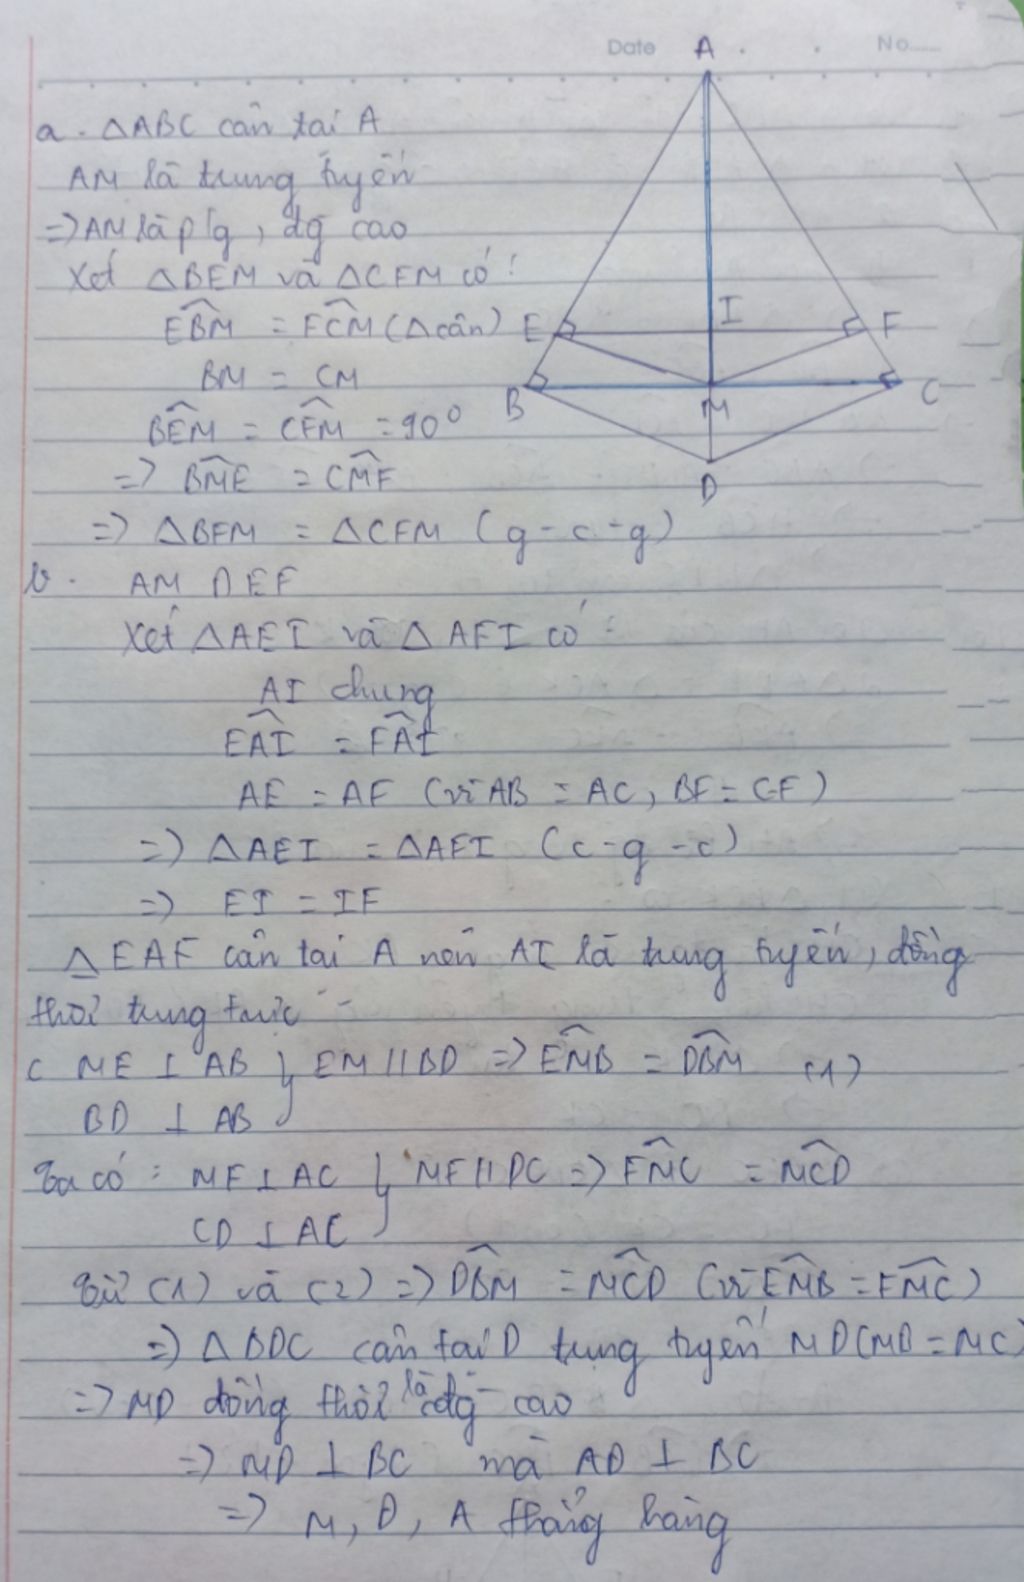 Date
No
A
a. △ABC cân tại A
AM là trung tuyến
=> AM là p/g, đg cao
Xét △BEM và △CFM có:
EBM = FCM (△cân)
BM = CM
BEM = CFM = 90°
=> BME = CMF
=> △BEM = △CFM (g-c-g)
E
I
F
B
M
C
D
b. AM ∩ EF
Xét △AEI và △AFI có:
AI chung
EAI = FAI
AE = AF (vì AB = AC, BE = CF)
=> △AEI = △AFI (c-g-c)
=> EI = IF
△EAF cân tại A nên AI là trung tuyến, đồng
thời trung trực
c ME ⊥ AB } EM // BD => EMB = DBM (1)
BD ⊥ AB
Ta có: MF ⊥ AC } MF // DC => FMC = MCD
CD ⊥ AC
Từ (1) và (2) => DBM = MCD (vì EMB = FMC)
=> △BDC cân tại D trung tuyến MD (MB = MC)
=> MD đồng thời là đg cao
=> MD ⊥ BC mà AD ⊥ BC
=> M, D, A thẳng hàng